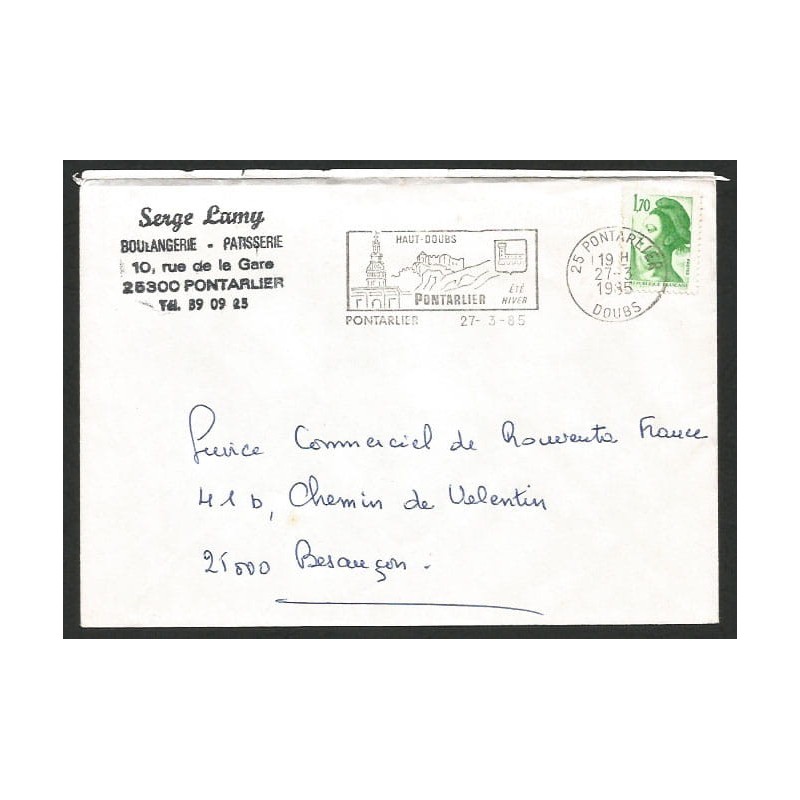 Serge Lamy
BOULANGERIE - PATISSERIE
10, rue de la Gare
25300 PONTARLIER
Tél. 39 09 25
HAUT-DOUBS
PONTARLIER
ÉTÉ
HIVER
PONTARLIER 27- 3-85
25 PONTARLIER
19 H
27-3
1985
DOUBS
1,70
REPUBLIQUE FRANÇAISE
Service Commercial de Rowenta France
41 b, Chemin de Valentin
25000 Besançon.